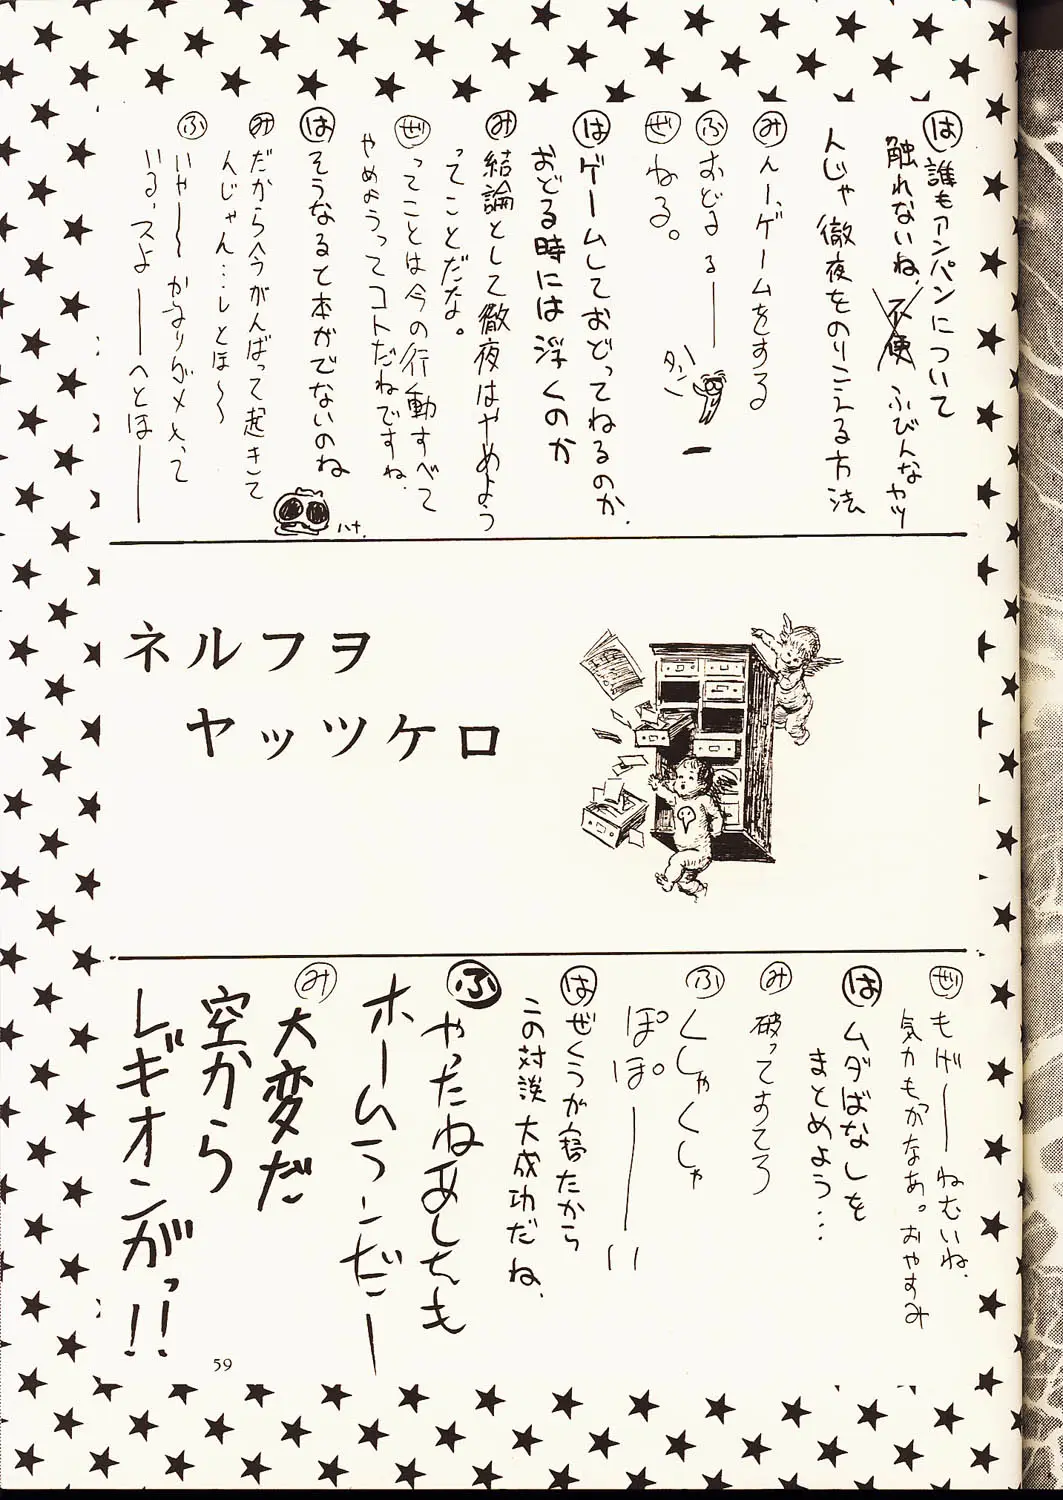 は 誰もアンパンについて
触れないね、不便 ふびんなヤツ
んじゃ徹夜をのりこえる方法
み んー、ゲームをする
ふ おどるー
タン
ぜ ねる。
は ゲームしておどってねるのか、
おどる時には浮くのか
み 結論として徹夜はやめよう
ってことだな。
ぜ ってことは今の行動すべて
やめようってコトだねですね、
は そうなると本がでないのね
ハナ
み だから今がんばって起きて
んじゃん…しとほ〜
ふ いや〜〜かなりダメ入って
いる、スよ――へとほ――
ネルフヲ
ヤッツケロ
ぜ もげー ねむいね、
気力もつかなあ。おやすみ
は ムダばなしを
まとめよう…
み 破ってすてろ
ふ くしゃくしゃ
ぽぽーい
は ぜくうが寝たから
この対談大成功だね、
ふ やったねあしたも
ホームランだー
み 大変だ
空から
レギオンがっ!!
59